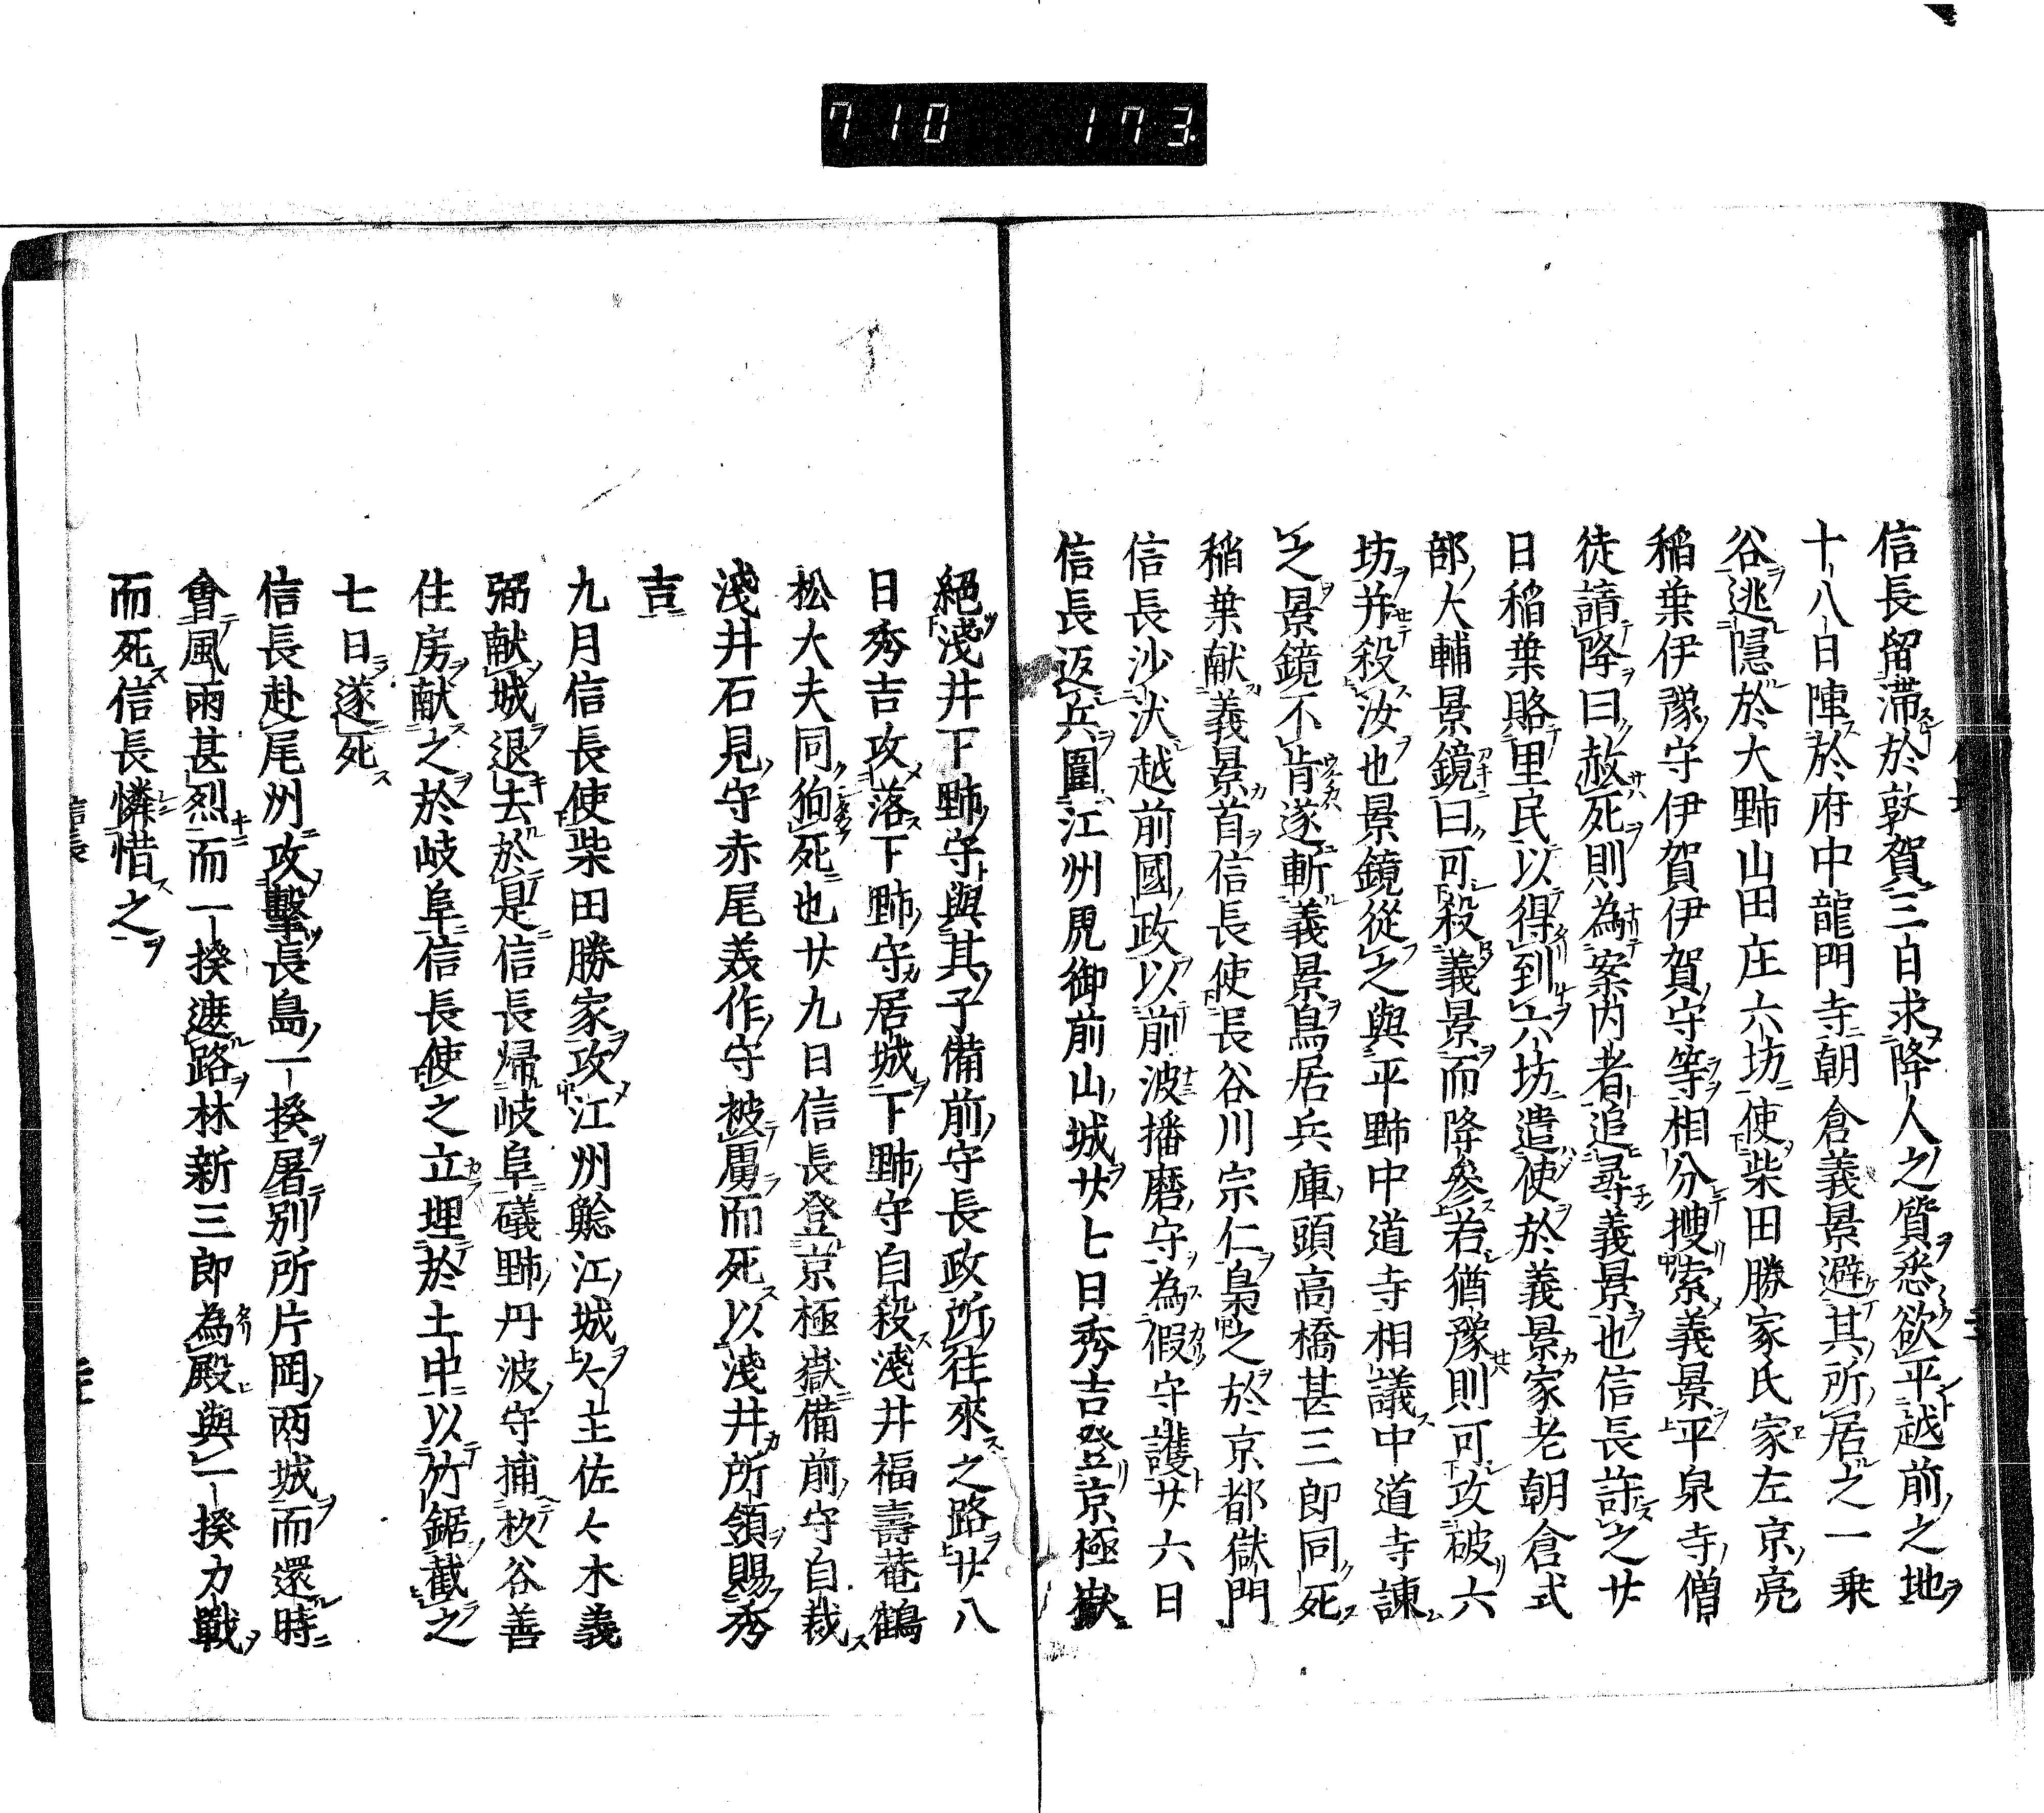 710 173.
信長留滞於敦賀三日求降人之質悉欲平越前之地
十八日陣於府中龍門寺朝倉義景避其所居之一乗
谷逃隠於大野山田庄六坊使柴田勝家氏家左京亮
稲葉伊豫守伊賀伊賀守等相分捜索義景平泉寺僧
徒請降曰赦死則為案内者追尋義景也信長許之廿
日稲葉賂里民以得到六坊遣使於義景家老朝倉式
部大輔景鏡曰可殺義景而降參若猶豫則可攻破六
坊并殺汝也景鏡從之與平野中道寺相議中道寺諫
之景鏡不肯遂斬義景鳥居兵庫頭高橋甚三郎同死
稲葉献義景首信長使長谷川宗仁梟之於京都獄門
信長沙汰越前國政以前波播磨守為假守護廿六日
信長返兵圍江州虎御前山城廿七日秀吉登京極嶽
絕淺井下野守與其子備前守長政所往來之路廿八
日秀吉攻落下野守居城下野守自殺淺井福壽菴鶴
松大夫同狥死也廿九日信長登京極嶽備前守自裁
淺井石見守赤尾美作守被虜而死以淺井所領賜秀
吉
九月信長使柴田勝家攻江州鯰江城々主佐々木義
弼献城退去於是信長歸岐阜礒野丹波守捕杦谷善
住房献之於岐阜信長使之立埋於土中以竹鋸截之
七日遂死
信長赴尾州攻擊長島一揆屠別所片岡両城而還時
會風雨甚烈而一揆遮路林新三郎為殿與一揆力戰
而死信長憐惜之
信長